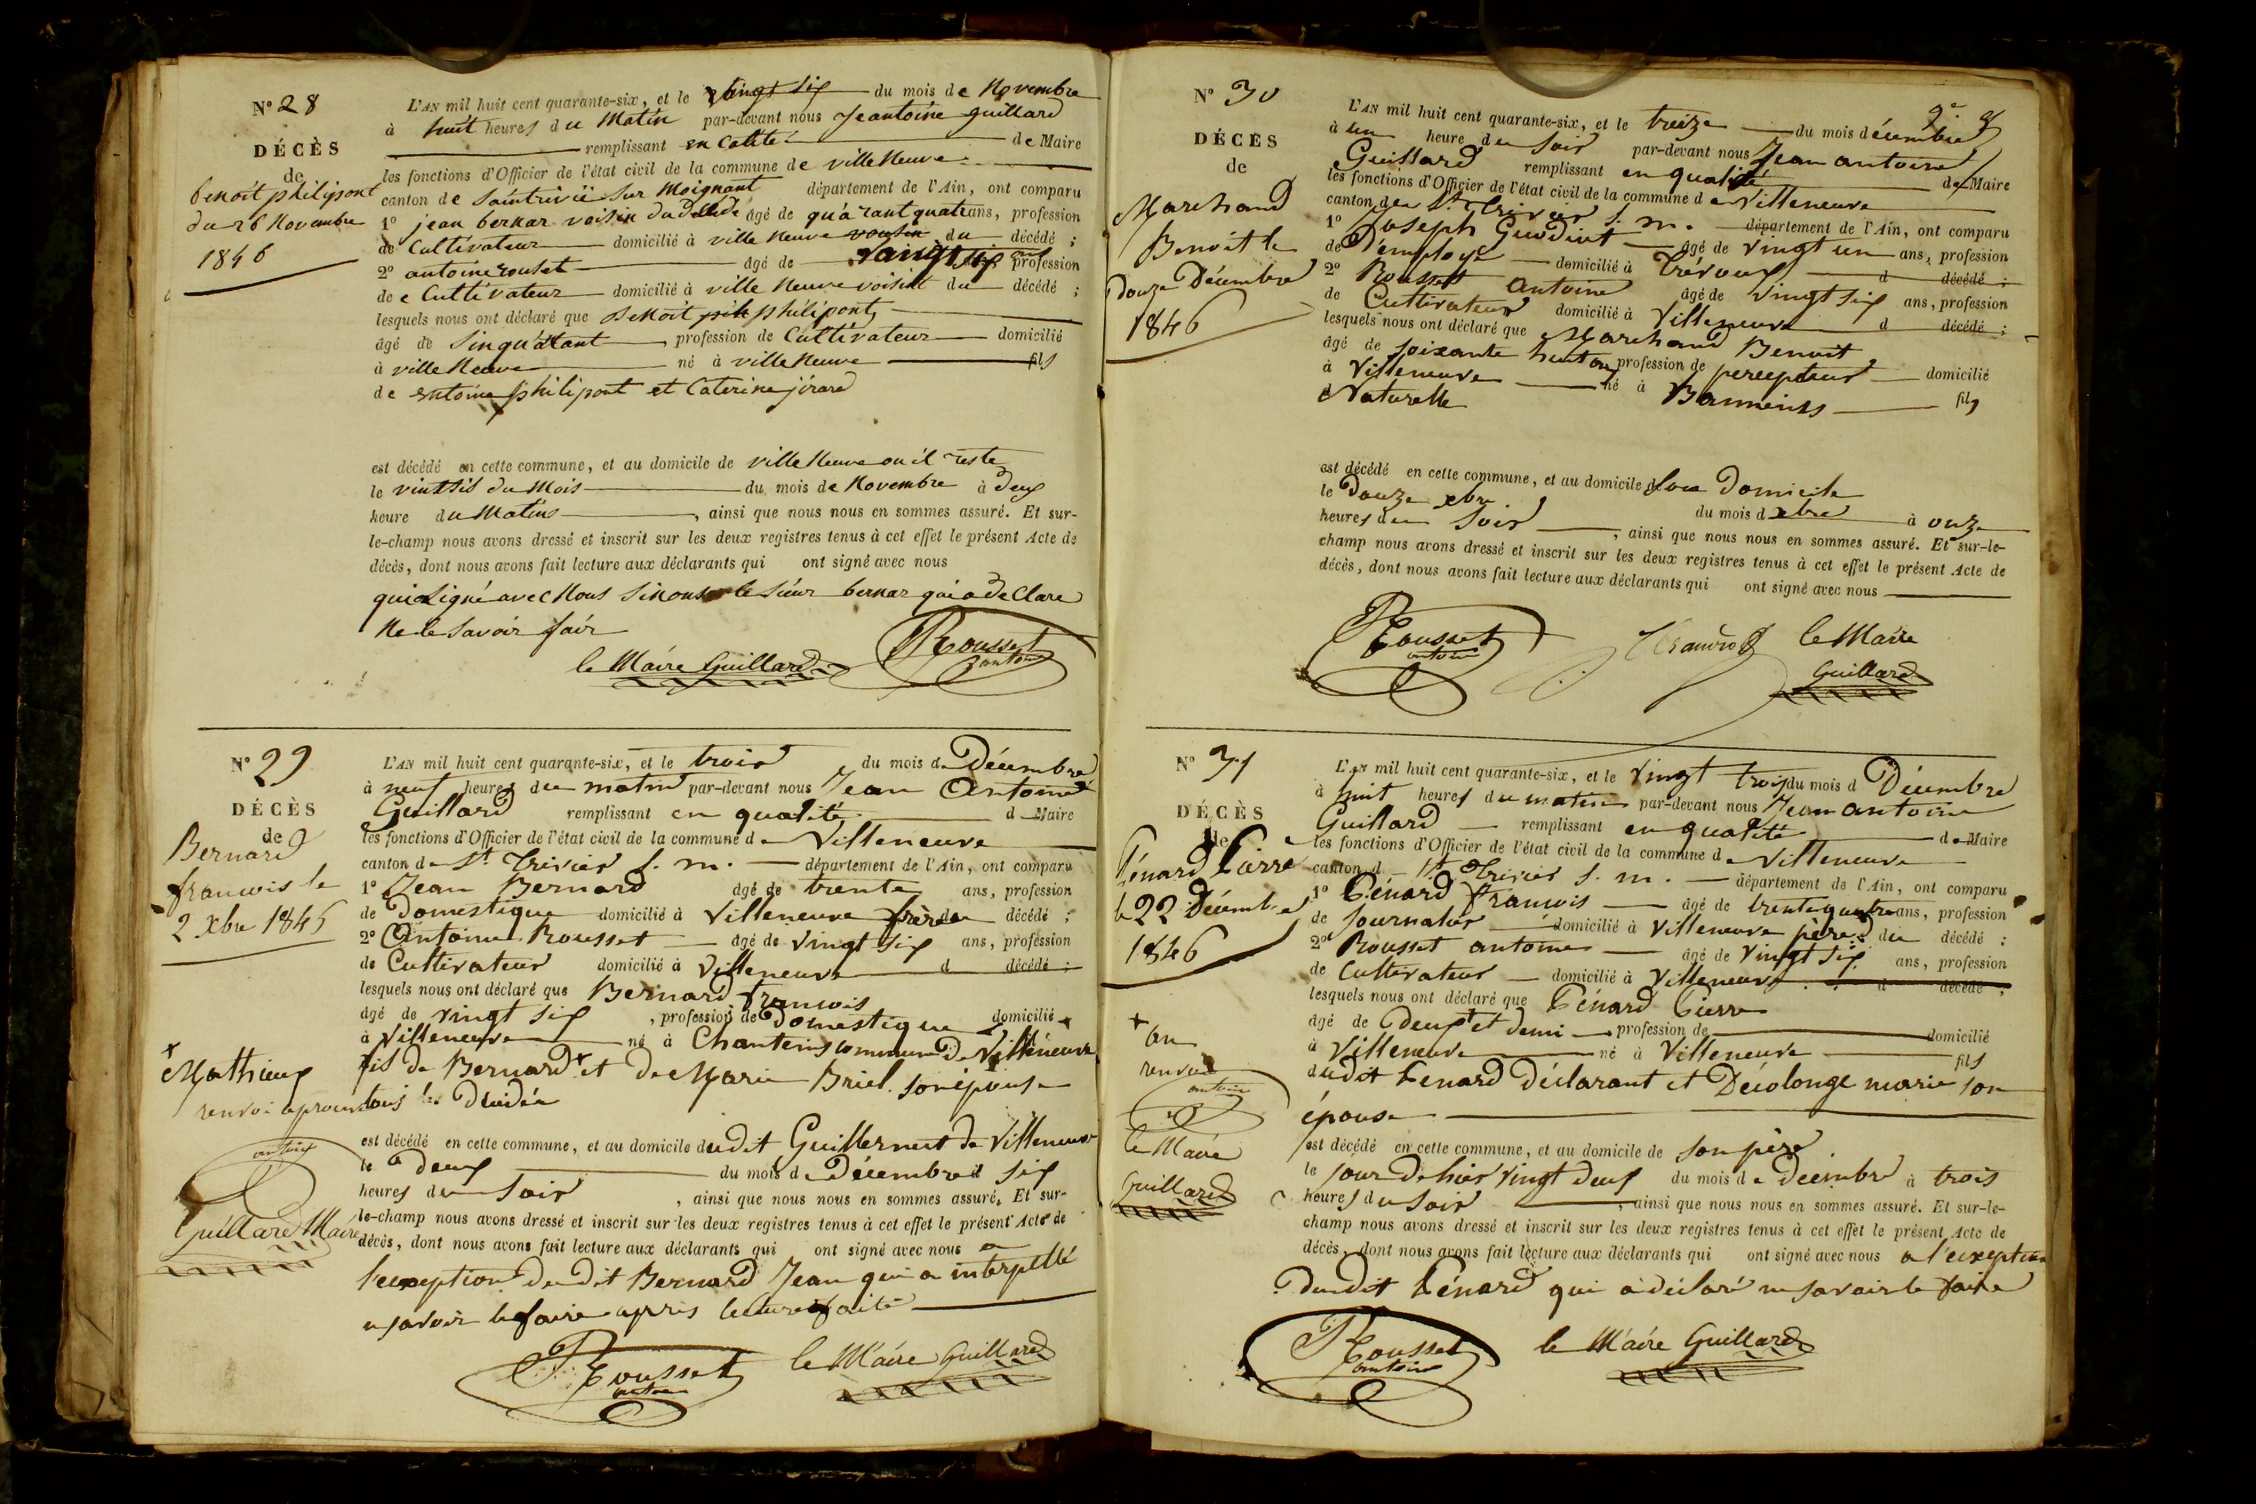 N° 28
DÉCÈS
de
benoit philipont
du 26 Novembre
1846
L'AN mil huit cent quarante-six, et le vingt six du mois de Novembre
à huit heures du Matin par-devant nous Jeantoine guillard
remplissant en Calité de Maire
les fonctions d'Officier de l'état civil de la commune de ville Neuve
canton de Saintriviè Sur Moignant département de l'Ain, ont comparu
1° jean bernar voisin du dècèdé âgé de quârantquatre ans, profession
de Cultivateur domicilié à ville Neuve vousin du décédé ;
2° antoine rouset âgé de vaingt six ans profession
de e Cultivateur domicilié à ville Neuve voisint du décédé ;
lesquels nous ont déclaré que Benoit philipont
âgé de Sinquâtant profession de Cultivateur domicilié
à ville Neuve né à ville Neuve fils
de entoine philipont et Caterine jirard
est décédé en cette commune, et au domicile de ville Neuve ou il reste
le vintsis du Mois du mois de Novembre à deux
heure du Matins, ainsi que nous nous en sommes assuré. Et sur-
le-champ nous avons dressé et inscrit sur les deux registres tenus à cet effet le présent Acte de
décès, dont nous avons fait lecture aux déclarants qui ont signé avec nous
qui a Signé avec Nous Sinous le Sieur bernar qui a de Clare
Ne le Savoir fair
le Maire Guillard
Rousset
antoine
N° 29
DÉCÈS
de
Bernard
francois le
2 Xbre 1846
L'AN mil huit cent quarante-six, et le trois du mois de Décembre
à neuf heures du matin par-devant nous Jean Antoine
Guillard remplissant en qualité d Maire
les fonctions d'Officier de l'état civil de la commune de Villeneuve
canton de St Trivier S. m. département de l'Ain, ont comparu
1° Jean Bernard âgé de trente ans, profession
de Domestique domicilié à Villeneuve frère du décédé ;
2° Antoine Rousset âgé de vingt six ans, profession
de Cultivateur domicilié à Villeneuve d décédé ;
lesquels nous ont déclaré que Bernard francois
âgé de vingt six, profession de Domestique domicilié
à Villeneuve né à Chanteins commune de Villeneuve
fils de Bernard + et de Marie Briel son épouse
tous les deux
+
Mathieux
renvoi aprouvé
antoine
Guillard Maire
est décédé en cette commune, et au domicile dudit Guillermet de Villeneuve
le deux du mois de Décembre à six
heures du soir, ainsi que nous nous en sommes assuré. Et sur-
le-champ nous avons dressé et inscrit sur les deux registres tenus à cet effet le présent Acte de
décès, dont nous avons fait lecture aux déclarants qui ont signé avec nous a
l'exception dudit Bernard Jean qui a interpellé
n savoir le faire après lecture faite
Rousset
antoine
le Maire Guillard
N° 30
DÉCÈS
de
Marchand
Benoit le
Douze Décembre
1846
L'AN mil huit cent quarante-six, et le treize du mois décembre
à un heure du soir par-devant nous Jean antoine
Guillard remplissant en qualité de Maire
les fonctions d'Officier de l'état civil de la commune de Villeneuve
canton de St Trivier S. m. département de l'Ain, ont comparu
1° Joseph âgé de vingt un ans, profession
de D'employé domicilié à Trévoux d décédé ;
2° Rousset Antoine âgé de vingt six ans, profession
de Cultivateur domicilié à Villeneuve d décédé ;
lesquels nous ont déclaré que Marchand Benoit
âgé de soixante huit ans profession de percepteur domicilié
à Villeneuve né à fils
Naturelle
est décédé en cette commune, et au domicile d son Domicile
le Douze xbre du mois d xbre à onze
heures du Soir, ainsi que nous nous en sommes assuré. Et sur-le-
champ nous avons dressé et inscrit sur les deux registres tenus à cet effet le présent Acte de
décès, dont nous avons fait lecture aux déclarants qui ont signé avec nous
Rousset
antoine
le Maire
Guillard
N° 31
DÉCÈS
de
Pénard Pierre
le 22 Décembre
1846
L'AN mil huit cent quarante-six, et le vingt trois du mois d Décembre
à huit heures du matin par-devant nous Jean antoine
Guillard remplissant en qualité de Maire
les fonctions d'Officier de l'état civil de la commune de Villeneuve
canton d St Trivier S. m. département de l'Ain, ont comparu
1° Pénard francois âgé de trente quatre ans, profession
de Journalier domicilié à Villeneuve père du décédé ;
2° Rousset antoine âgé de vingt six ans, profession
de Cultivateur domicilié à Villeneuve d décédé ;
lesquels nous ont déclaré que Pénard Pierre
âgé de deux + et demi profession de domicilié
à Villeneuve né à Villeneuve fils
dudit Penard Déclarant et Décolonge marie son
épouse
+ an
renvoi
antoine
le Maire
Guillard
est décédé en cette commune, et au domicile de son père
le jour Dehier vingt deux du mois de Décembre à trois
heures du soir, ainsi que nous nous en sommes assuré. Et sur-le-
champ nous avons dressé et inscrit sur les deux registres tenus à cet effet le présent Acte de
décès, dont nous avons fait lecture aux déclarants qui ont signé avec nous a l'exception
Dudit Pénard qui a déclaré ne savoir le faire
Rousset
antoine
le Maire Guillard